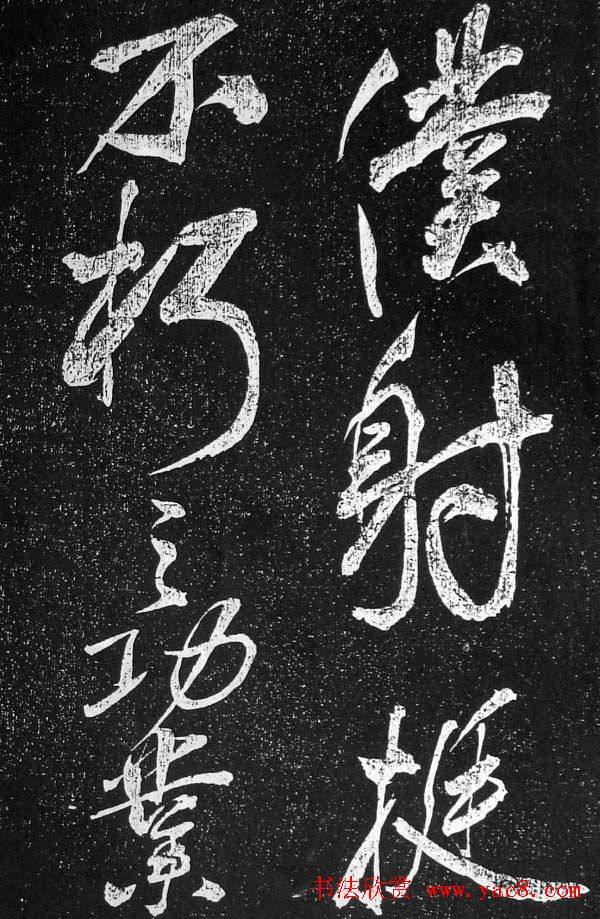 僕射挺
不朽之功業
书法欣赏 www.yac8.com